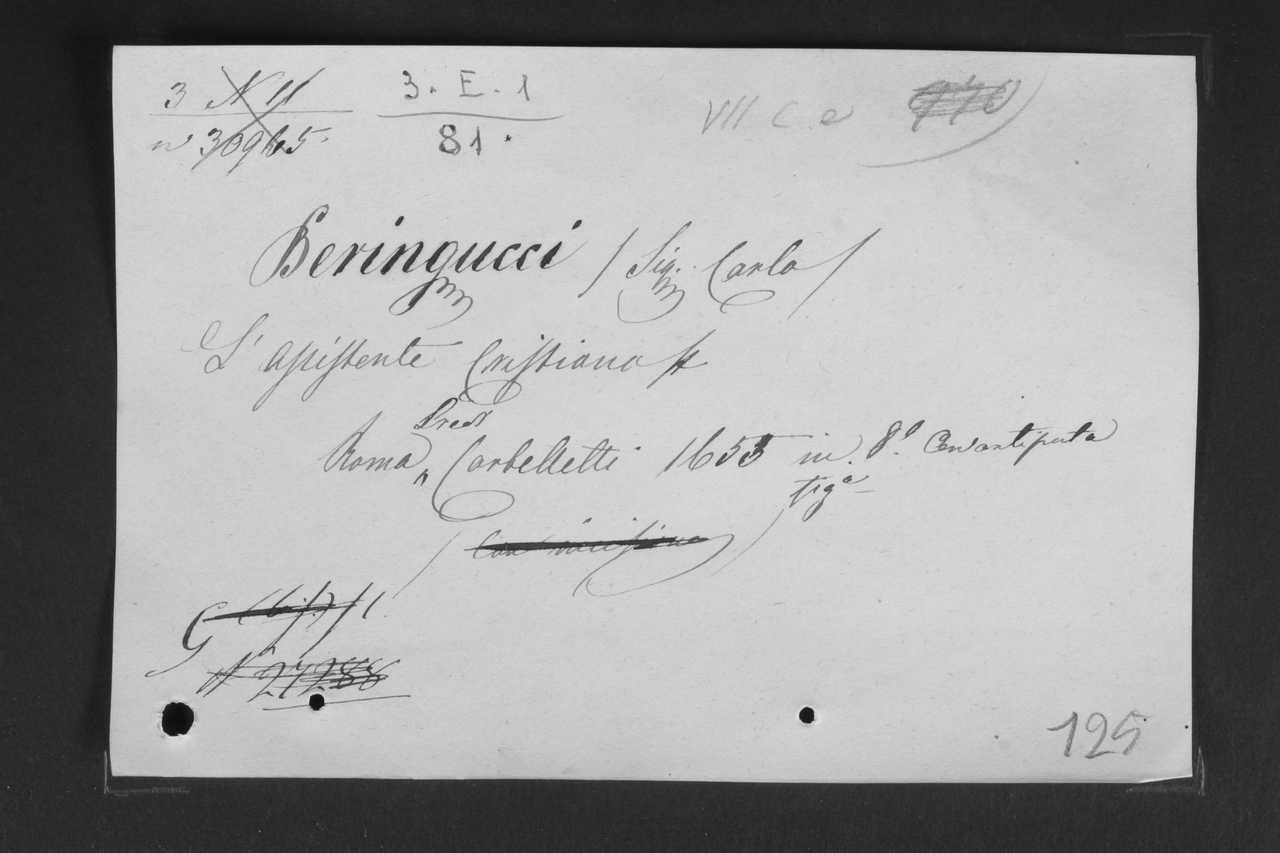 3. E. 1
81.
VII C. e
Beringucci / Sig. Carlo /
L'assistente Cristiano #
Roma, Eredi Corbelletti 1653 in 8.º Con antiporta
fig.ª
G
N 27288
125